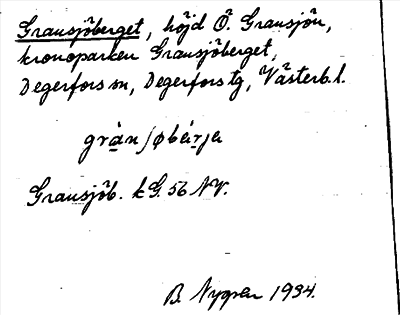 Gransjöberget, höjd Ö. Gransjön,
kronoparken Gransjöberget,
Degerfors sn, Degerfors tg, Västerb. l.
grànʃøbæ̀rjə
Gransjöb. k G. 56 NV.
B. Nygren 1934.